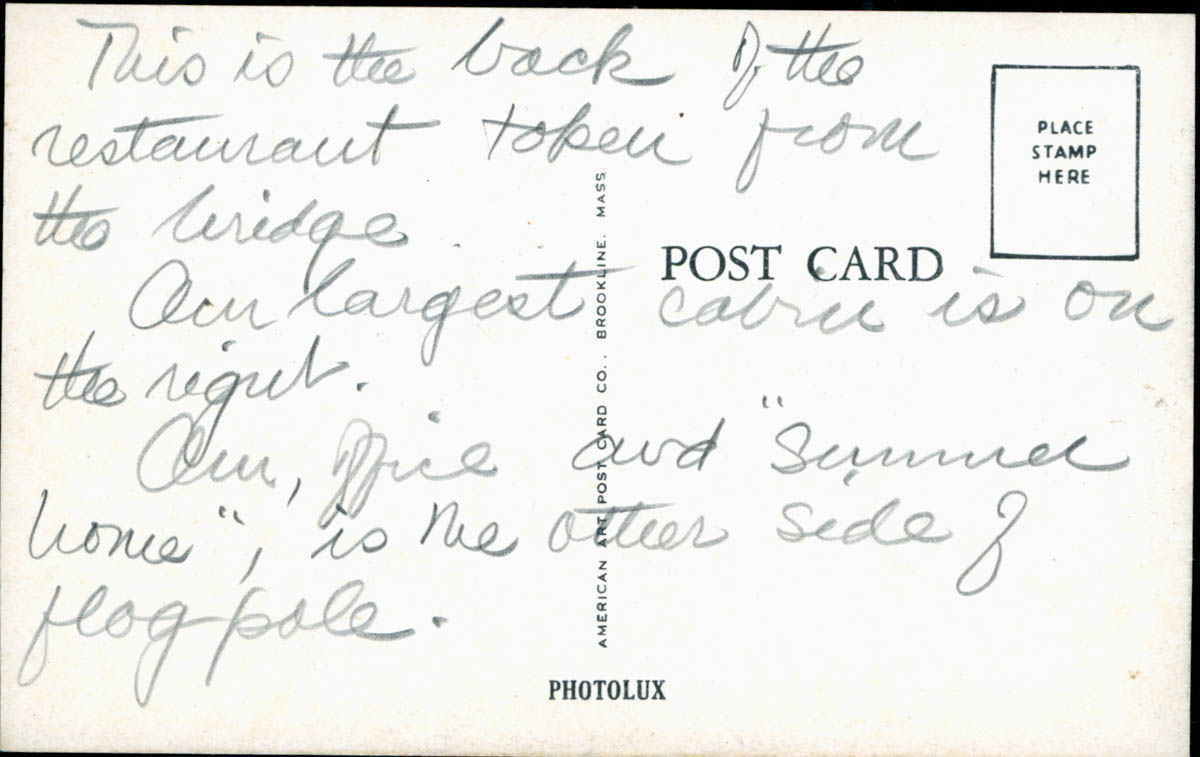 This is the back of the
restaurant taken from
the bridge.
Our largest cabin is on
the right.
Our, office and "Summer
home", is the other side of
flag pole.
POST CARD
PLACE
STAMP
HERE
AMERICAN ART POST CARD CO., BROOKLINE, MASS.
PHOTOLUX